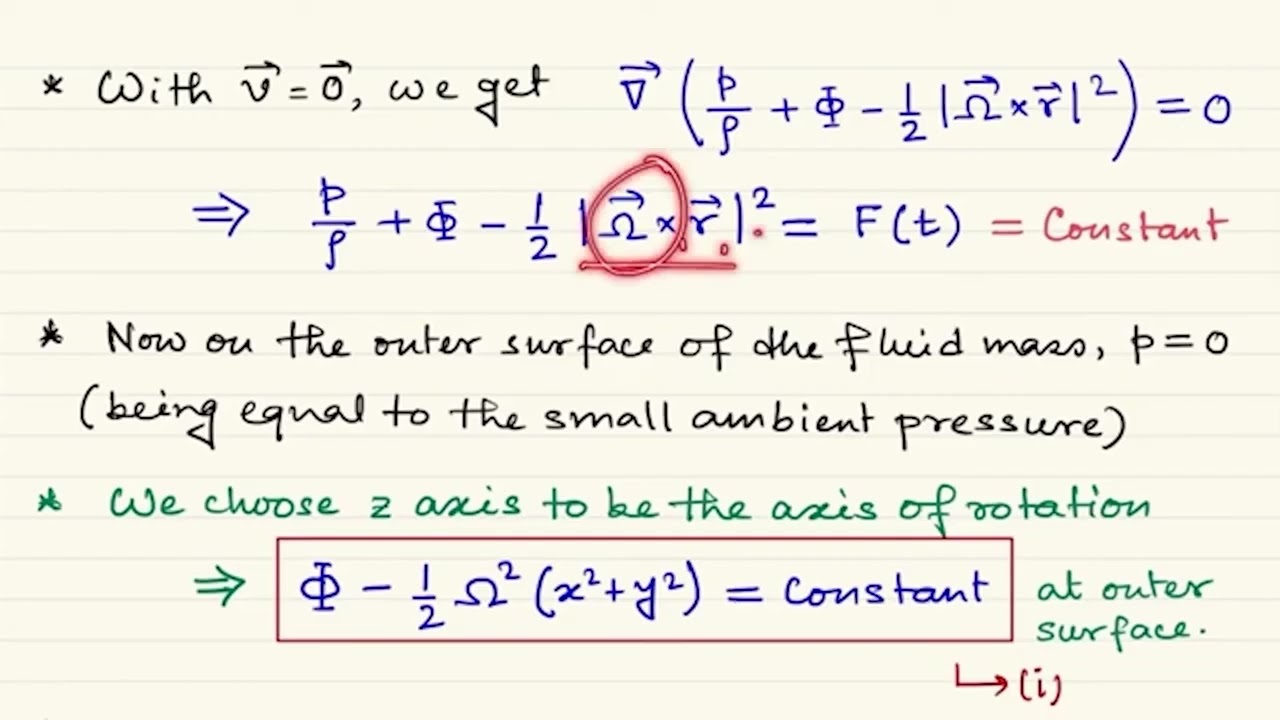 * With v⃗ = 0⃗, we get ∇⃗ (p/ρ + Φ − 1/2 |Ω⃗ × r⃗|²) = 0
⇒ p/ρ + Φ − 1/2 |Ω⃗ × r⃗|² = F(t) = Constant
* Now on the outer surface of the fluid mass, p = 0
(being equal to the small ambient pressure)
* We choose z axis to be the axis of rotation
⇒ Φ − 1/2 Ω² (x² + y²) = Constant at outer
surface.
↳ (i)